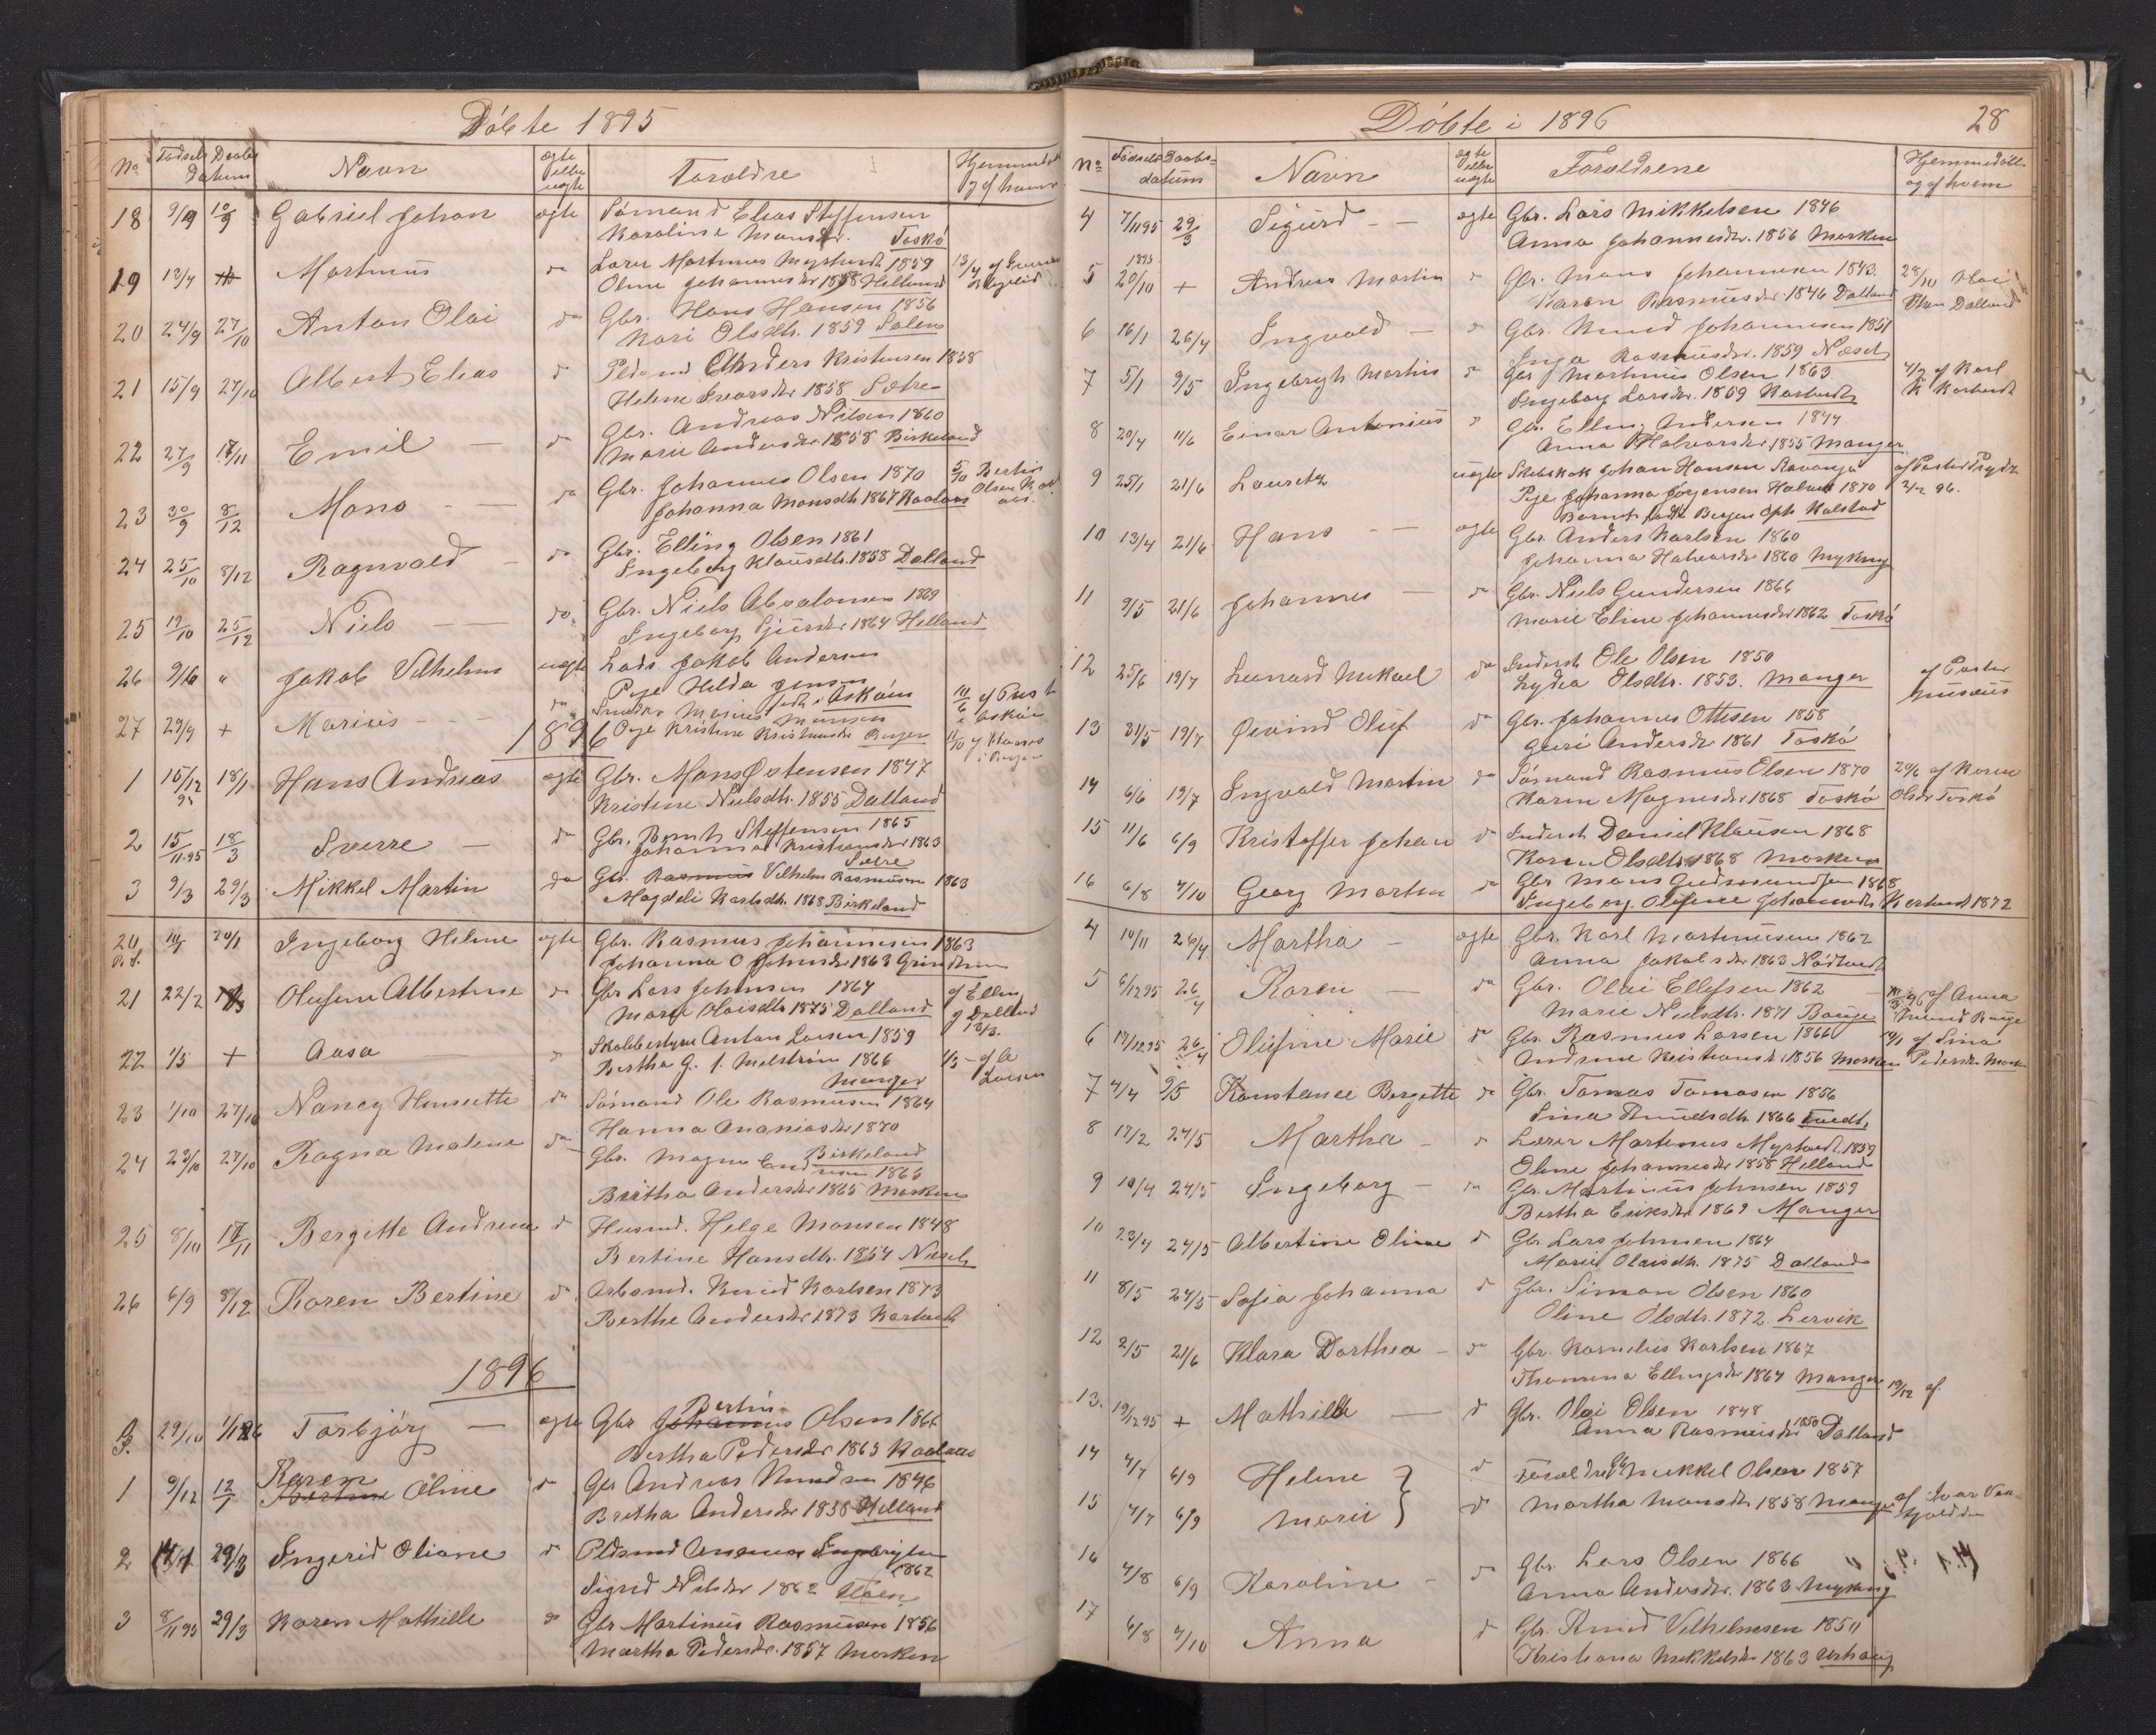 Döbte 1895
No. Födsels Daabs Datum Navn ægte eller uægte Foroldre Hjemmedøbt og af hvem
18 9/9 10/9 Gabriel Johan ægte Sömand Elias Steffensen
Karoline Monsdr. Toskö
19 13/4 Martinus do Lærer Martinus Myrtvedt 1859 13/4 af
Oline Johannesdr 1858 Helland
20 24/9 27/10 Anton Olai do Gbr. Hans Hansen 1856
Kari Olsdtr. 1859
21 15/9 27/10 Albert Elias d Anders Kristensen 1838
Helene Ivarsdr 1858 Sætre
22 27/9 17/11 Emil — d Gbr. Andreas Nilsen 1860
Marie Andersdr 1858 Birkeland
23 30/9 8/12 Mons — do Gbr. Johannes Olsen 1870 5/10 Bertin
Johanna Monsdtr 1867 Kaalaas Olsen
24 25/10 8/12 Ragnvald — do Gbr. Elling Olsen 1861
Ingeborg Klausdtr. 1858 Dalland
25 19/10 25/12 Niels — do. Gbr. Niels Absalonsen 1869
Ingeborg Sjursdr 1864 Helland
26 9/10 " Jakob Vilhelm uægte Lods. Jakob Andersen
Pige Hilda Jensen
födt i Askøen af Prest
i Askøen
27 29/9 + Marius — do Smed Marius Monsen
Pige Kristine Kristensdr Bergen 11/10 af
i Bergen
1896
1 15/12 95 18/1 Hans Andreas ægte Gbr. Mons Østensen 1847
Kristine Nielsdtr. 1855 Dalland
2 15/11.95 18/3 Sverre — do Gbr. Bernt Steffensen 1865
Johanna Kristiansdr 1863
Sætre
3 9/3 29/3 Mikkel Martin do Gbr. Rasmus Vilhelm Rasmussen 1863
Magdeli Karlsdtr. 1868 Birkeland
20 20/1 Ingeborg Helene ægte Gbr. Rasmus Johannesen 1863
Johanna O Johnsdr 1863 Grindheim
21 22/2 Olufine Albertine do Gbr Lars Johnsen 1864 af Ellen
Marie Olaisdtr 1875 Dalland Dalland
13/3.
22 1/5 + Aasa do Skolebestyrer Anton Larsen 1859
Bertha G. f. Melström 1866 1/5 - af A
Manger Larsen
23 1/10 27/10 Nancy Henriette do Sömand Ole Rasmussen 1864
Hanna Ananiasdr 1870
Birkeland
24 23/10 27/10 Ragna Malene do Gbr. Magne 1863
Britha Andersdr 1865 Mosken
25 8/10 17/11 Bergitte Andrine d Husmd. Helge Monsen 1848
Bertine Hansdtr. 1854 Næset
26 6/9 8/12 Karen Bertine d. Arbsmd. Knud Karlsen 1873
Berthe Andersdr 1873 Kartveit
1896
29/10 Torbjörg — ægte Gbr Johannes Bertin Olsen 1864
Bertha Pedersdr 1863 Kaalaas
1 9/12 12/1 Bertine Karen Oline d Gbr Andreas Knudsen 1846
Bretha Andersdr 1858 Helland
2 29/3 Ingerid Oliane d
1862
Sigrid Nilsdr 1862
3 8/11 95 29/3 Karen Mathilde do Gbr Martinus Rasmussen 1856
Martha Pedersdr. 1857 Mosken
Döbte i 1896 28
No. Födsels Daabs= datum Navn ægte eller uægte Forældrene Hjemmedöbt og af hvem
4 7/11 95 29/3 Sigurd — ægte Gbr. Lars Mikkelsen 1846
Anna Johannesdr. 1856 Mosken
5 1895 20/10 + Andreas Martin d Gbr. Mons Johannesen 1843. 28/10 Olai
Karen Rasmusdr. 1846 Dalland Olsen Dalland
6 16/1 26/4 Ingvald — d Gbr. Knud Johannesen 1851
Inga Rasmusdr. 1859 Næset
7 5/1 9/5 Ingebrigt Martin d Gbr Martinus Olsen 1863. 4/2 af Karl
Ingeborg Larsdr. 1859 Kartvedt K Kartvedt
8 20/4 11/6 Einar Antonius d Gbr. Elling Andersen 1844
Anna Halvorsdr. 1855 Manger
9 25/1 21/6 Lauretz uægte Skibskok Johan Hansen Stavanger af Pastor Prydz
Pige Johanna Jørgensen 1870 96.
Bergen oph Kalstad
10 13/4 21/6 Hans — ægte Gbr. Anders Karlsen 1860
Johanna Halvorsdr 1860 Myking
11 9/5 21/6 Johannes — do Gbr. Niels Gundersen 1866
Marie Eline Johannesdr 1862 Toskö
12 25/6 19/7 Leonard Mikael do Inderst Ole Olsen 1850 af Pastor
Lydia Olsdtr. 1853. Manger Musæus
13 31/5 19/7 Øivind Oluf d Gbr. Johannes Ottesen 1858
Guri Andersdr 1861 Toskö
14 6/6 19/7 Ingvald Martin do Sömand Rasmus Olsen 1870 20/6 af Karen
Karen Magnesdr 1868 Toskö Olsdr Toskö
15 11/6 6/9 Kristoffer Johan d Inderst Daniel Klausen 1868
Karen Olsdtr 1868 Mosken
16 6/8 4/10 Georg Martin do Gbr Mons Gudmundsen 1868
Ingeborg Olufine Johannesdr Kartvedt 1872
4 10/11 26/4 Martha — ægte Gbr. Karl Martinusen 1862
Anna Jakobsdr 1863 Nödtvedt
5 6/12 95 26/4 Karen — do Gbr. Olai Ellefsen 1862 96 af Anna
Marie Nielsdtr. 1871 Bauge
6 17/12 95 26/4 Olufine Marie do Gbr. Rasmus Larsen 1866 14/1 af Sina
Andrine Kristiansdr. 1856 Mosken Pedersdr. Mosken
7 4/4 9/5 Konstance Bergitte do Gbr. Tomas Tomasen 1856
Sina Knudsdtr. 1866 Tvedt
8 17/2 24/5 Martha — do Lærer Martinus Myrtvedt. 1859
Oline Johannesdr 1858 Helland
9 10/4 24/5 Ingeborg — do Gbr. Martinus Johnsen 1859
Bertha Eriksdr. 1869 Manger
10 23/4 24/5 Albertine Oline d Gbr Lars Johnsen 1864
Marie Olaisdtr. 1875 Dalland
11 8/5 24/5 Sofia Johanna d Gbr. Simon Olsen 1860
Oline Olsdtr. 1872 Lervik
12 2/5 21/6 Klara Dorthea — do Gbr. Kornelius Karlsen 1867
Thomina Ellingsdr 1864 Manger
13. 19/12 95 + Mathilde — d Gbr. Olai Olsen 1848 19/12 af
Anna Rasmusdr 1850 Dalland
14 4/7 6/9 Helene } d Mikkel Olsen 1857
15 4/7 6/9 Marie } d Martha Monsdr 1858 Manger af Ivar
16 4/8 6/9 Karoline — do Gbr. Lars Olsen 1866
Anna Andersdr. 1863 Myking
17 6/8 4/10 Anna d Gbr. Knud Vilhelmsen 1850
Kristiana Mikkelsdr 1863 Urhaug